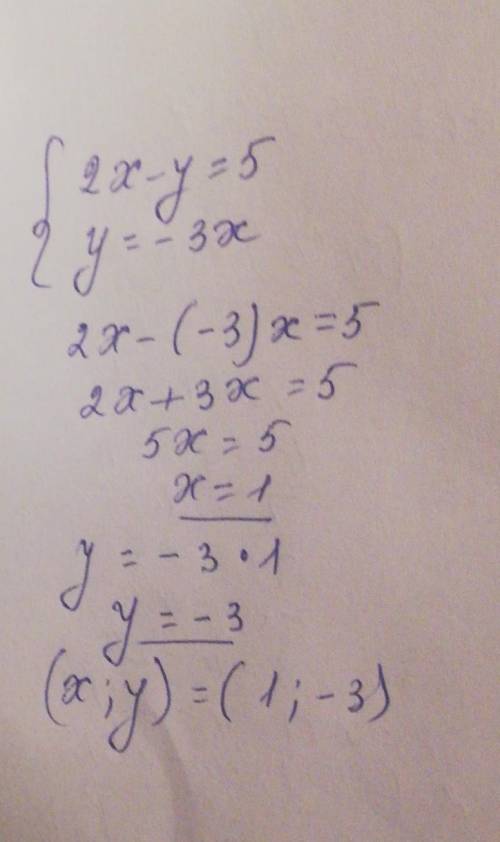 { 2x-y=5
y=-3x
2x-(-3)x=5
2x+3x=5
5x=5
x=1
y=-3·1
y=-3
(x;y)=(1;-3)